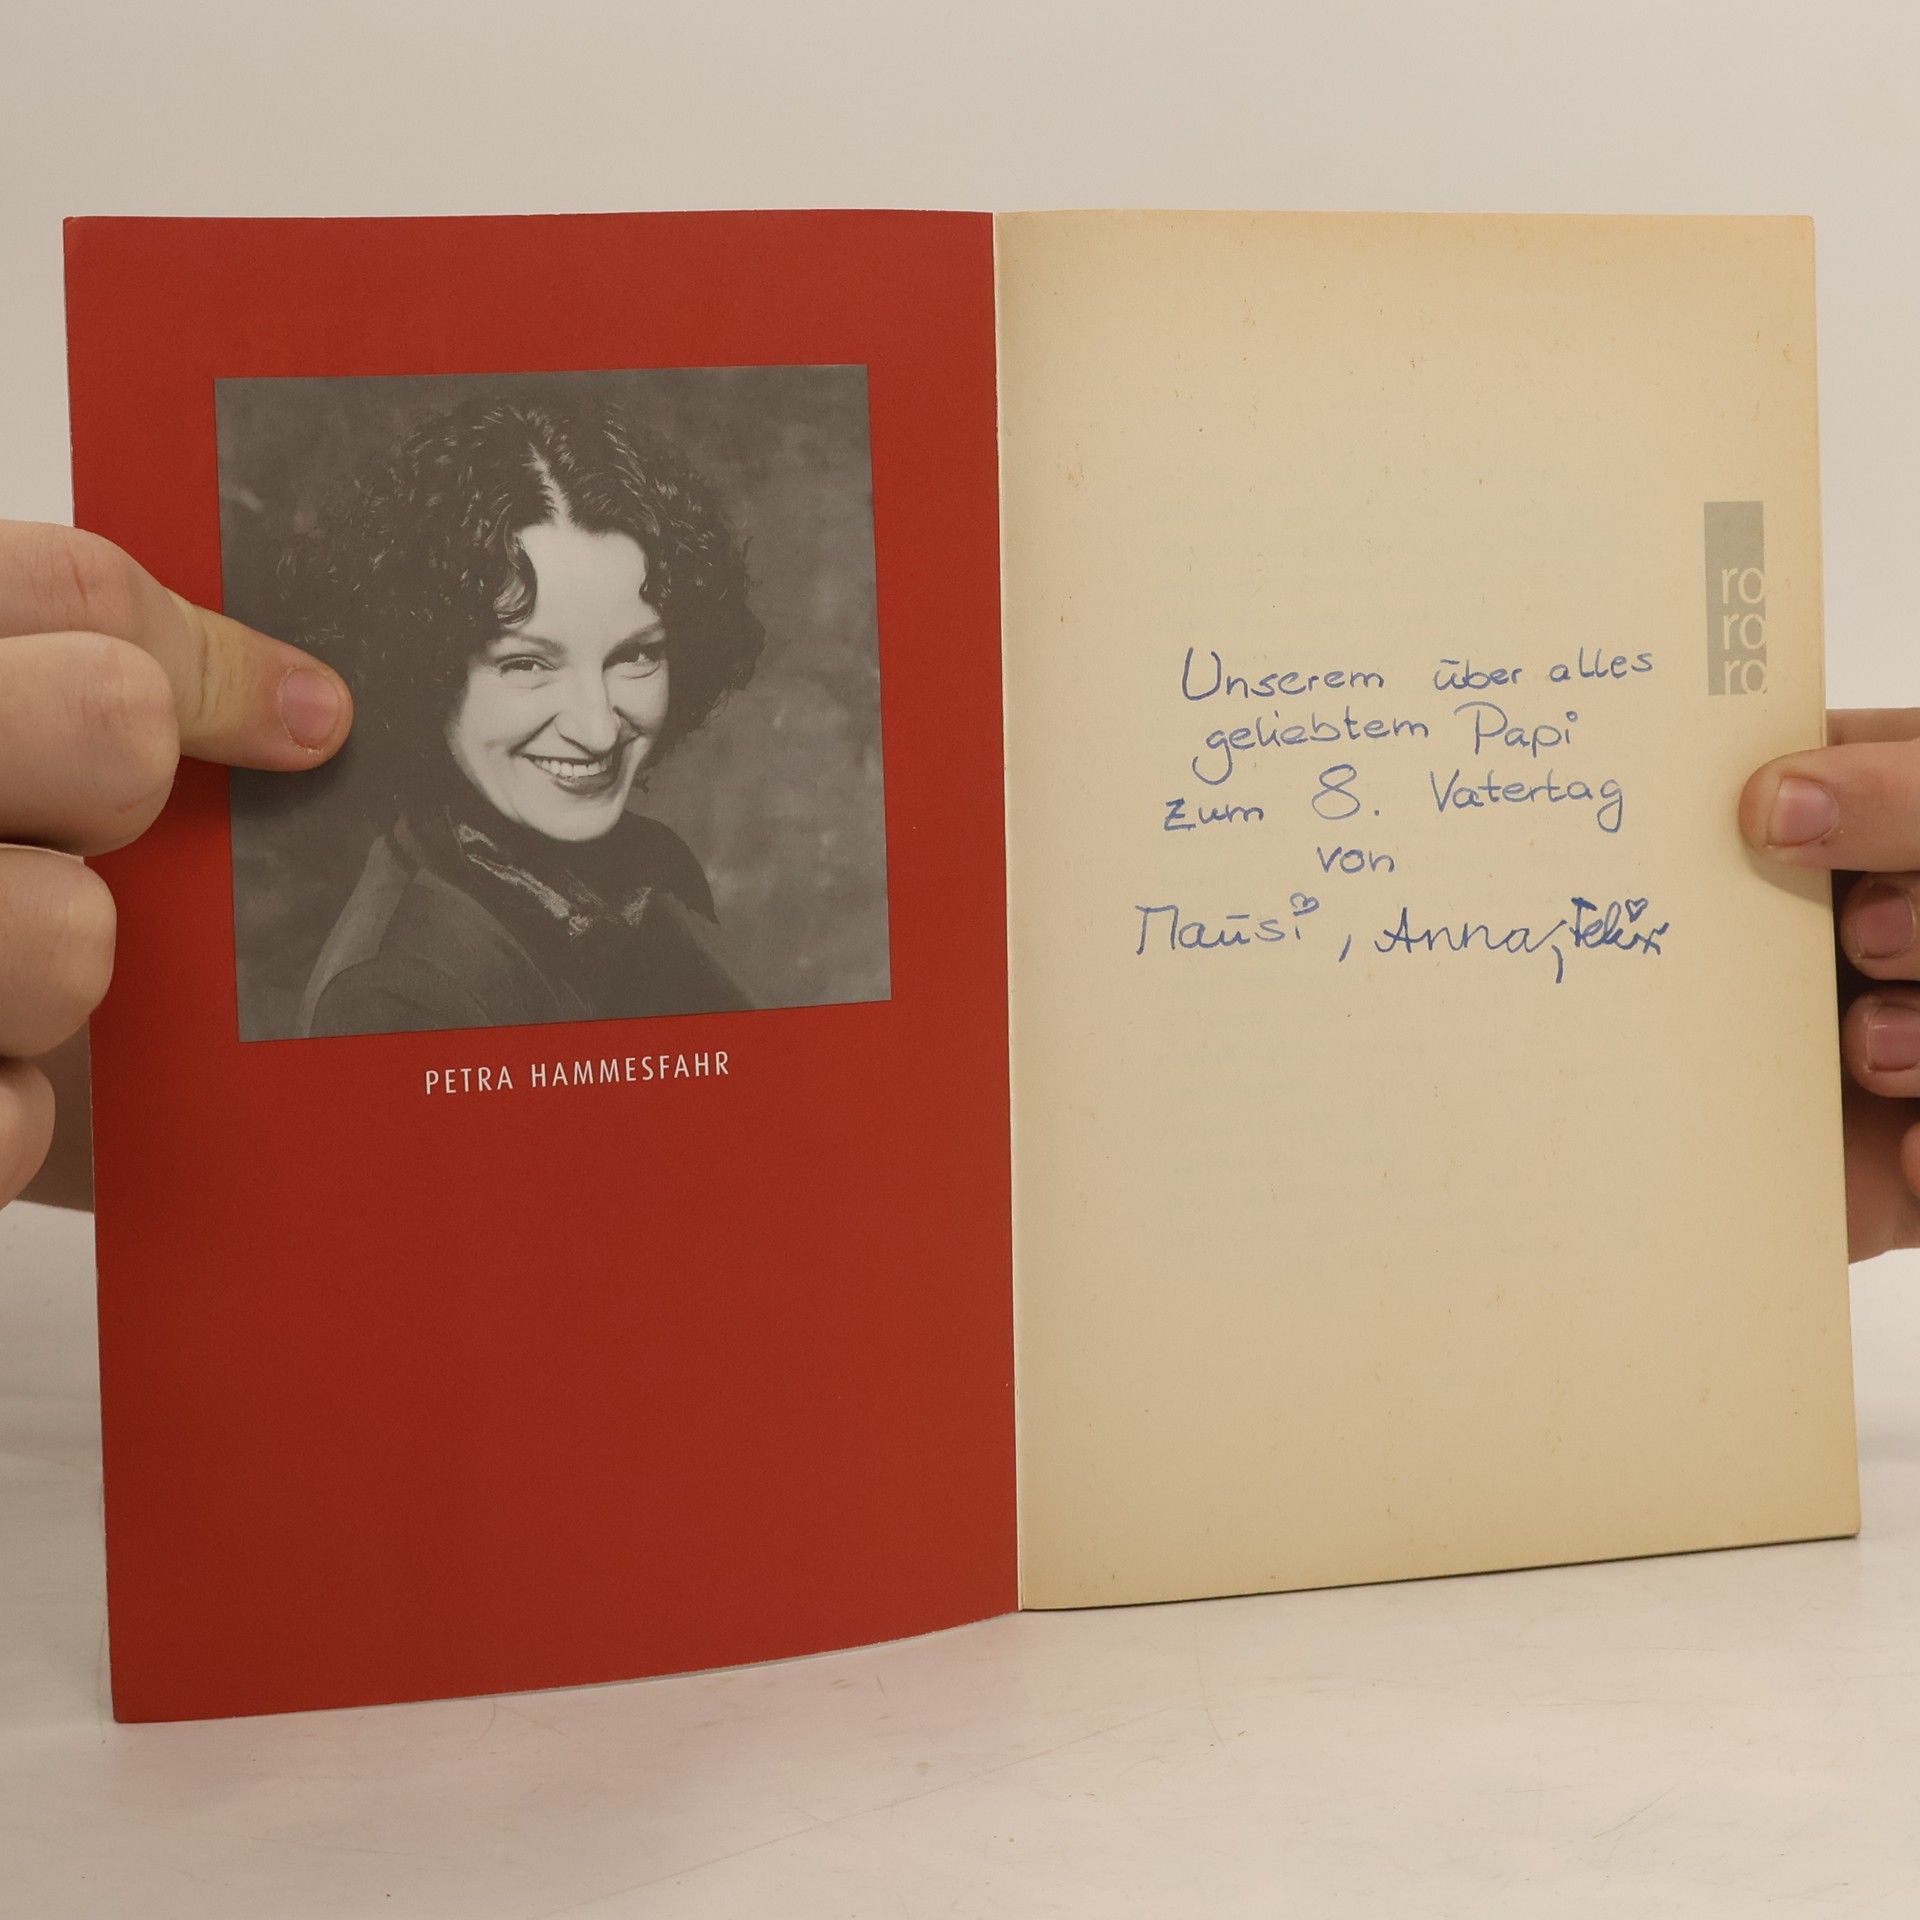 PETRA HAMMESFAHR
ro
ro
ro
Unserem über alles
geliebtem Papi
zum 8. Vatertag
von
Mausi, Anna, Felix